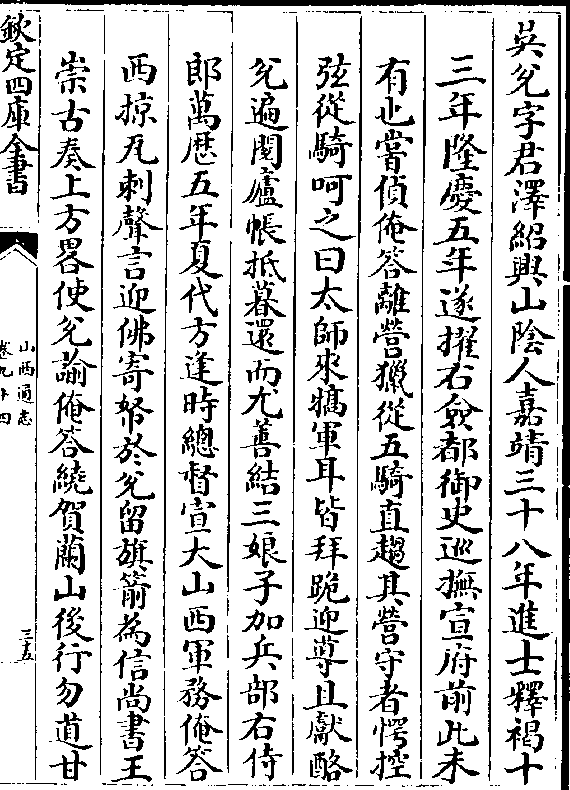 吳兊字君澤紹興山陰人嘉靖三十八年進士釋褐十
三年隆慶五年遂擢右僉都御史巡撫宣府前此未
有也嘗偵俺答離營獵從五騎直趨其營守者愕控
弦從騎呵之曰太師來犒軍耳皆拜跪迎導且獻酪
兊遍閱廬帳抵暮還而尤善結三娘子加兵部右侍
郎萬歷五年夏代方逢時總督宣大山西軍務俺答
西掠瓦剌聲言迎佛寄帑於兊留旗箭為信尚書王
崇古奏上方畧使兊諭俺答繞賀蘭山後行勿道甘
欽定四庫全書
山西通志
卷九十四
三五